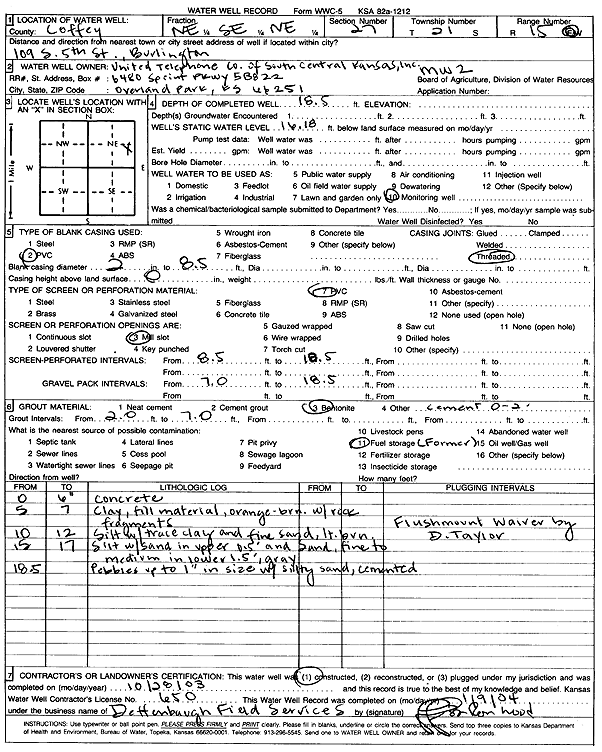 WATER WELL RECORD Form WWC-5 KSA 82a-1212
1 LOCATION OF WATER WELL: Fraction Section Number Township Number Range Number
County: Coffey NE ¼ SE ¼ NE ¼ 27 T 21 S R 15 E/W
Distance and direction from nearest town or city street address of well if located within city?
109 S. 5th St., Burlington
2 WATER WELL OWNER: United Telephone Co. of South Central Kansas, Inc. MW2
RR#, St. Address, Box # : 6480 Sprint Pkwy 5B822 Board of Agriculture, Division of Water Resources
City, State, ZIP Code : Overland Park, KS 66251 Application Number:
3 LOCATE WELL'S LOCATION WITH AN "X" IN SECTION BOX:
N
NW NE X
W E
SW SE
S
1 Mile
4 DEPTH OF COMPLETED WELL 18.5 ft. ELEVATION:
Depth(s) Groundwater Encountered 1. ft. 2. ft. 3. ft.
WELL'S STATIC WATER LEVEL 16.18 ft. below land surface measured on mo/day/yr
Pump test data: Well water was ft. after hours pumping gpm
Est. Yield gpm: Well water was ft. after hours pumping gpm
Bore Hole Diameter in. to ft., and in. to ft.
WELL WATER TO BE USED AS: 5 Public water supply 8 Air conditioning 11 Injection well
1 Domestic 3 Feedlot 6 Oil field water supply 9 Dewatering 12 Other (Specify below)
2 Irrigation 4 Industrial 7 Lawn and garden only 10 Monitoring well
Was a chemical/bacteriological sample submitted to Department? Yes No ; If yes, mo/day/yr sample was submitted Water Well Disinfected? Yes No
5 TYPE OF BLANK CASING USED: 5 Wrought iron 8 Concrete tile CASING JOINTS: Glued Clamped
1 Steel 3 RMP (SR) 6 Asbestos-Cement 9 Other (specify below) Welded
2 PVC 4 ABS 7 Fiberglass Threaded
Blank casing diameter 2 in. to 8.5 ft., Dia in. to ft., Dia in. to ft.
Casing height above land surface 0 in., weight lbs./ft. Wall thickness or gauge No.
TYPE OF SCREEN OR PERFORATION MATERIAL: 7 PVC 10 Asbestos-cement
1 Steel 3 Stainless steel 5 Fiberglass 8 RMP (SR) 11 Other (specify)
2 Brass 4 Galvanized steel 6 Concrete tile 9 ABS 12 None used (open hole)
SCREEN OR PERFORATION OPENINGS ARE: 5 Gauzed wrapped 8 Saw cut 11 None (open hole)
1 Continuous slot 3 Mill slot 6 Wire wrapped 9 Drilled holes
2 Louvered shutter 4 Key punched 7 Torch cut 10 Other (specify)
SCREEN-PERFORATED INTERVALS: From 8.5 ft. to 18.5 ft., From ft. to ft.
From ft. to ft., From ft. to ft.
GRAVEL PACK INTERVALS: From 7.0 ft. to 18.5 ft., From ft. to ft.
From ft. to ft., From ft. to ft.
6 GROUT MATERIAL: 1 Neat cement 2 Cement grout 3 Bentonite 4 Other cement 0-2'
Grout Intervals: From 2.0 ft. to 7.0 ft., From ft. to ft., From ft. to ft.
What is the nearest source of possible contamination: 10 Livestock pens 14 Abandoned water well
1 Septic tank 4 Lateral lines 7 Pit privy 11 Fuel storage (Former) 15 Oil well/Gas well
2 Sewer lines 5 Cess pool 8 Sewage lagoon 12 Fertilizer storage 16 Other (specify below)
3 Watertight sewer lines 6 Seepage pit 9 Feedyard 13 Insecticide storage
Direction from well? How many feet?
FROM TO LITHOLOGIC LOG FROM TO PLUGGING INTERVALS
0 6" Concrete
5 7 Clay, fill material, orange-brn. w/rock fragments
10 12 Silt w/trace clay and fine sand, lt. brn.
15 17 Silt w/sand in upper 0.5' and sand, fine to medium in lower 1.5', gray
18.5 Pebbles up to 1" in size w/ silty sand, cemented
Flushmount Waiver by
D. Taylor
7 CONTRACTOR'S OR LANDOWNER'S CERTIFICATION: This water well was (1) constructed, (2) reconstructed, or (3) plugged under my jurisdiction and was
completed on (mo/day/year) 10/28/03 and this record is true to the best of my knowledge and belief. Kansas
Water Well Contractor's License No. 650 This Water Well Record was completed on (mo/day/yr) 1/9/04
under the business name of Dettenbaugh Field Services by (signature)
INSTRUCTIONS: Use typewriter or ball point pen. PLEASE PRESS FIRMLY and PRINT clearly. Please fill in blanks, underline or circle the correct answers. Send top three copies to Kansas Department
of Health and Environment, Bureau of Water, Topeka, Kansas 66620-0001. Telephone: 913-296-5545. Send one to WATER WELL OWNER and retain one for your records.